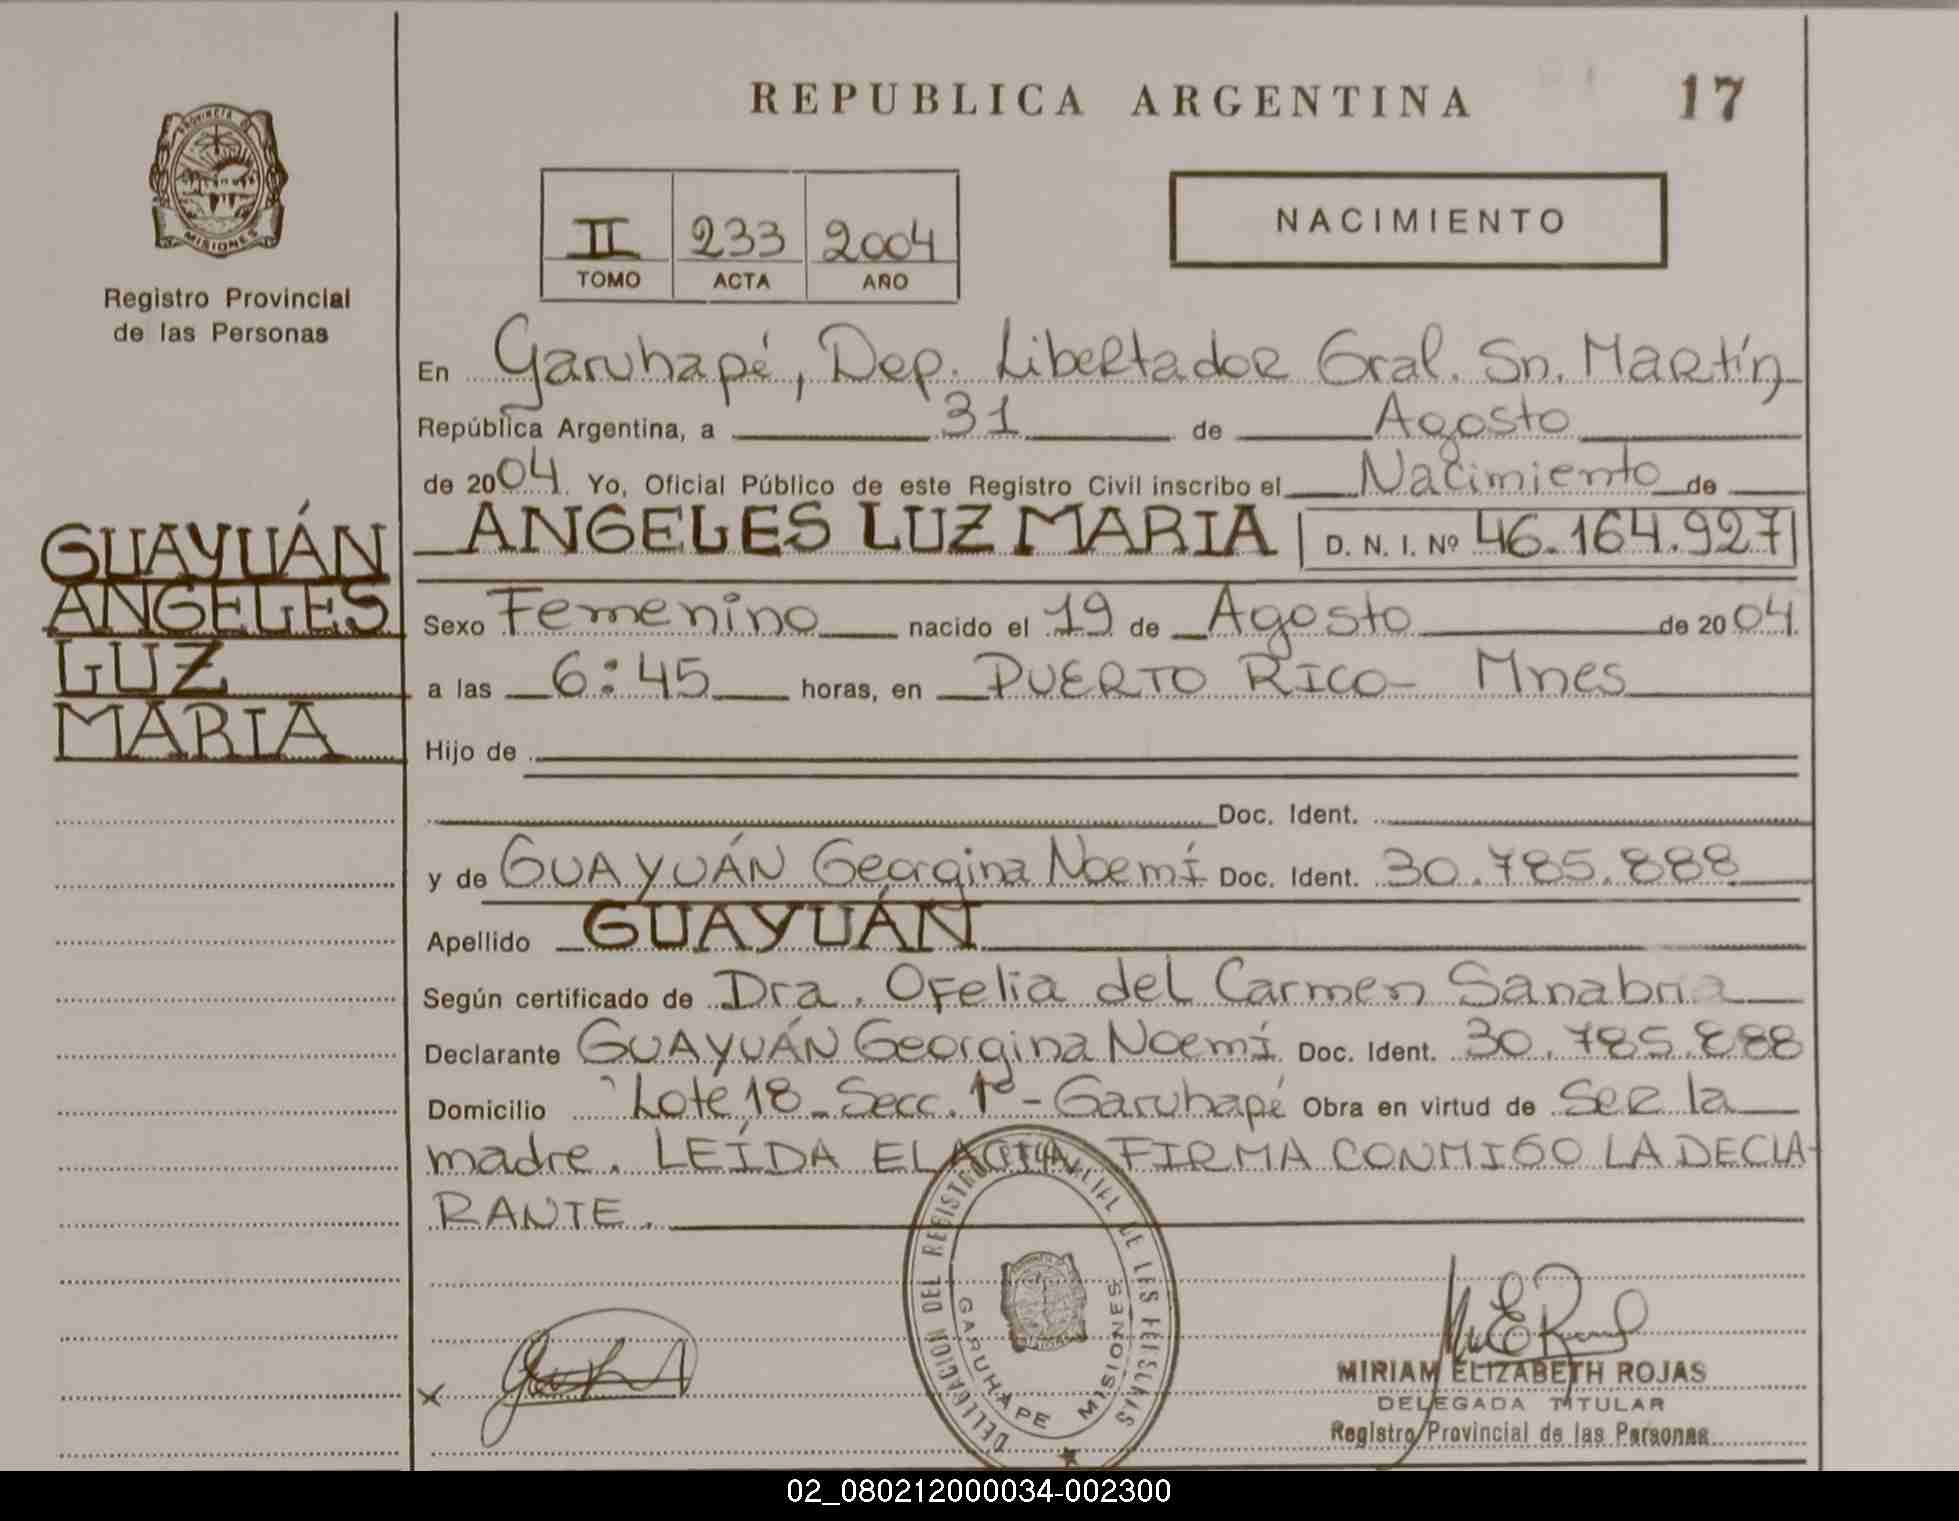 REPUBLICA ARGENTINA
17
PROVINCIA DE
MISIONES
Registro Provincial
de las Personas
II 233 2004
TOMO ACTA AÑO
NACIMIENTO
En Garuhapé, Dep. Libertador Gral. Sn. Martín
República Argentina, a 31 de Agosto
de 2004. Yo, Oficial Público de este Registro Civil inscribo el Nacimiento de
ANGELES LUZ MARIA D. N. I. Nº 46.164.927
GUAYUÁN
ANGELES
LUZ
MARIA
Sexo Femenino nacido el 19 de Agosto de 2004.
a las 6:45 horas, en PUERTO RICO- Mnes
Hijo de
Doc. Ident.
y de GUAYUÁN Georgina Noemí Doc. Ident. 30.785.888
Apellido GUAYUÁN
Según certificado de Dra. Ofelia del Carmen Sanabria
Declarante GUAYUÁN Georgina Noemí Doc. Ident. 30.785.888
Domicilio Lote 18 - Secc. 1º - Garuhapé Obra en virtud de Ser la
madre. LEÍDA EL ACTA, FIRMA CONMIGO LA DECLA-
RANTE.
DELEGACION DEL REGISTRO PROVINCIAL DE LAS PERSONAS
GARUHAPE MISIONES
x
MIRIAM ELIZABETH ROJAS
DELEGADA TITULAR
Registro Provincial de las Personas
02_080212000034-002300